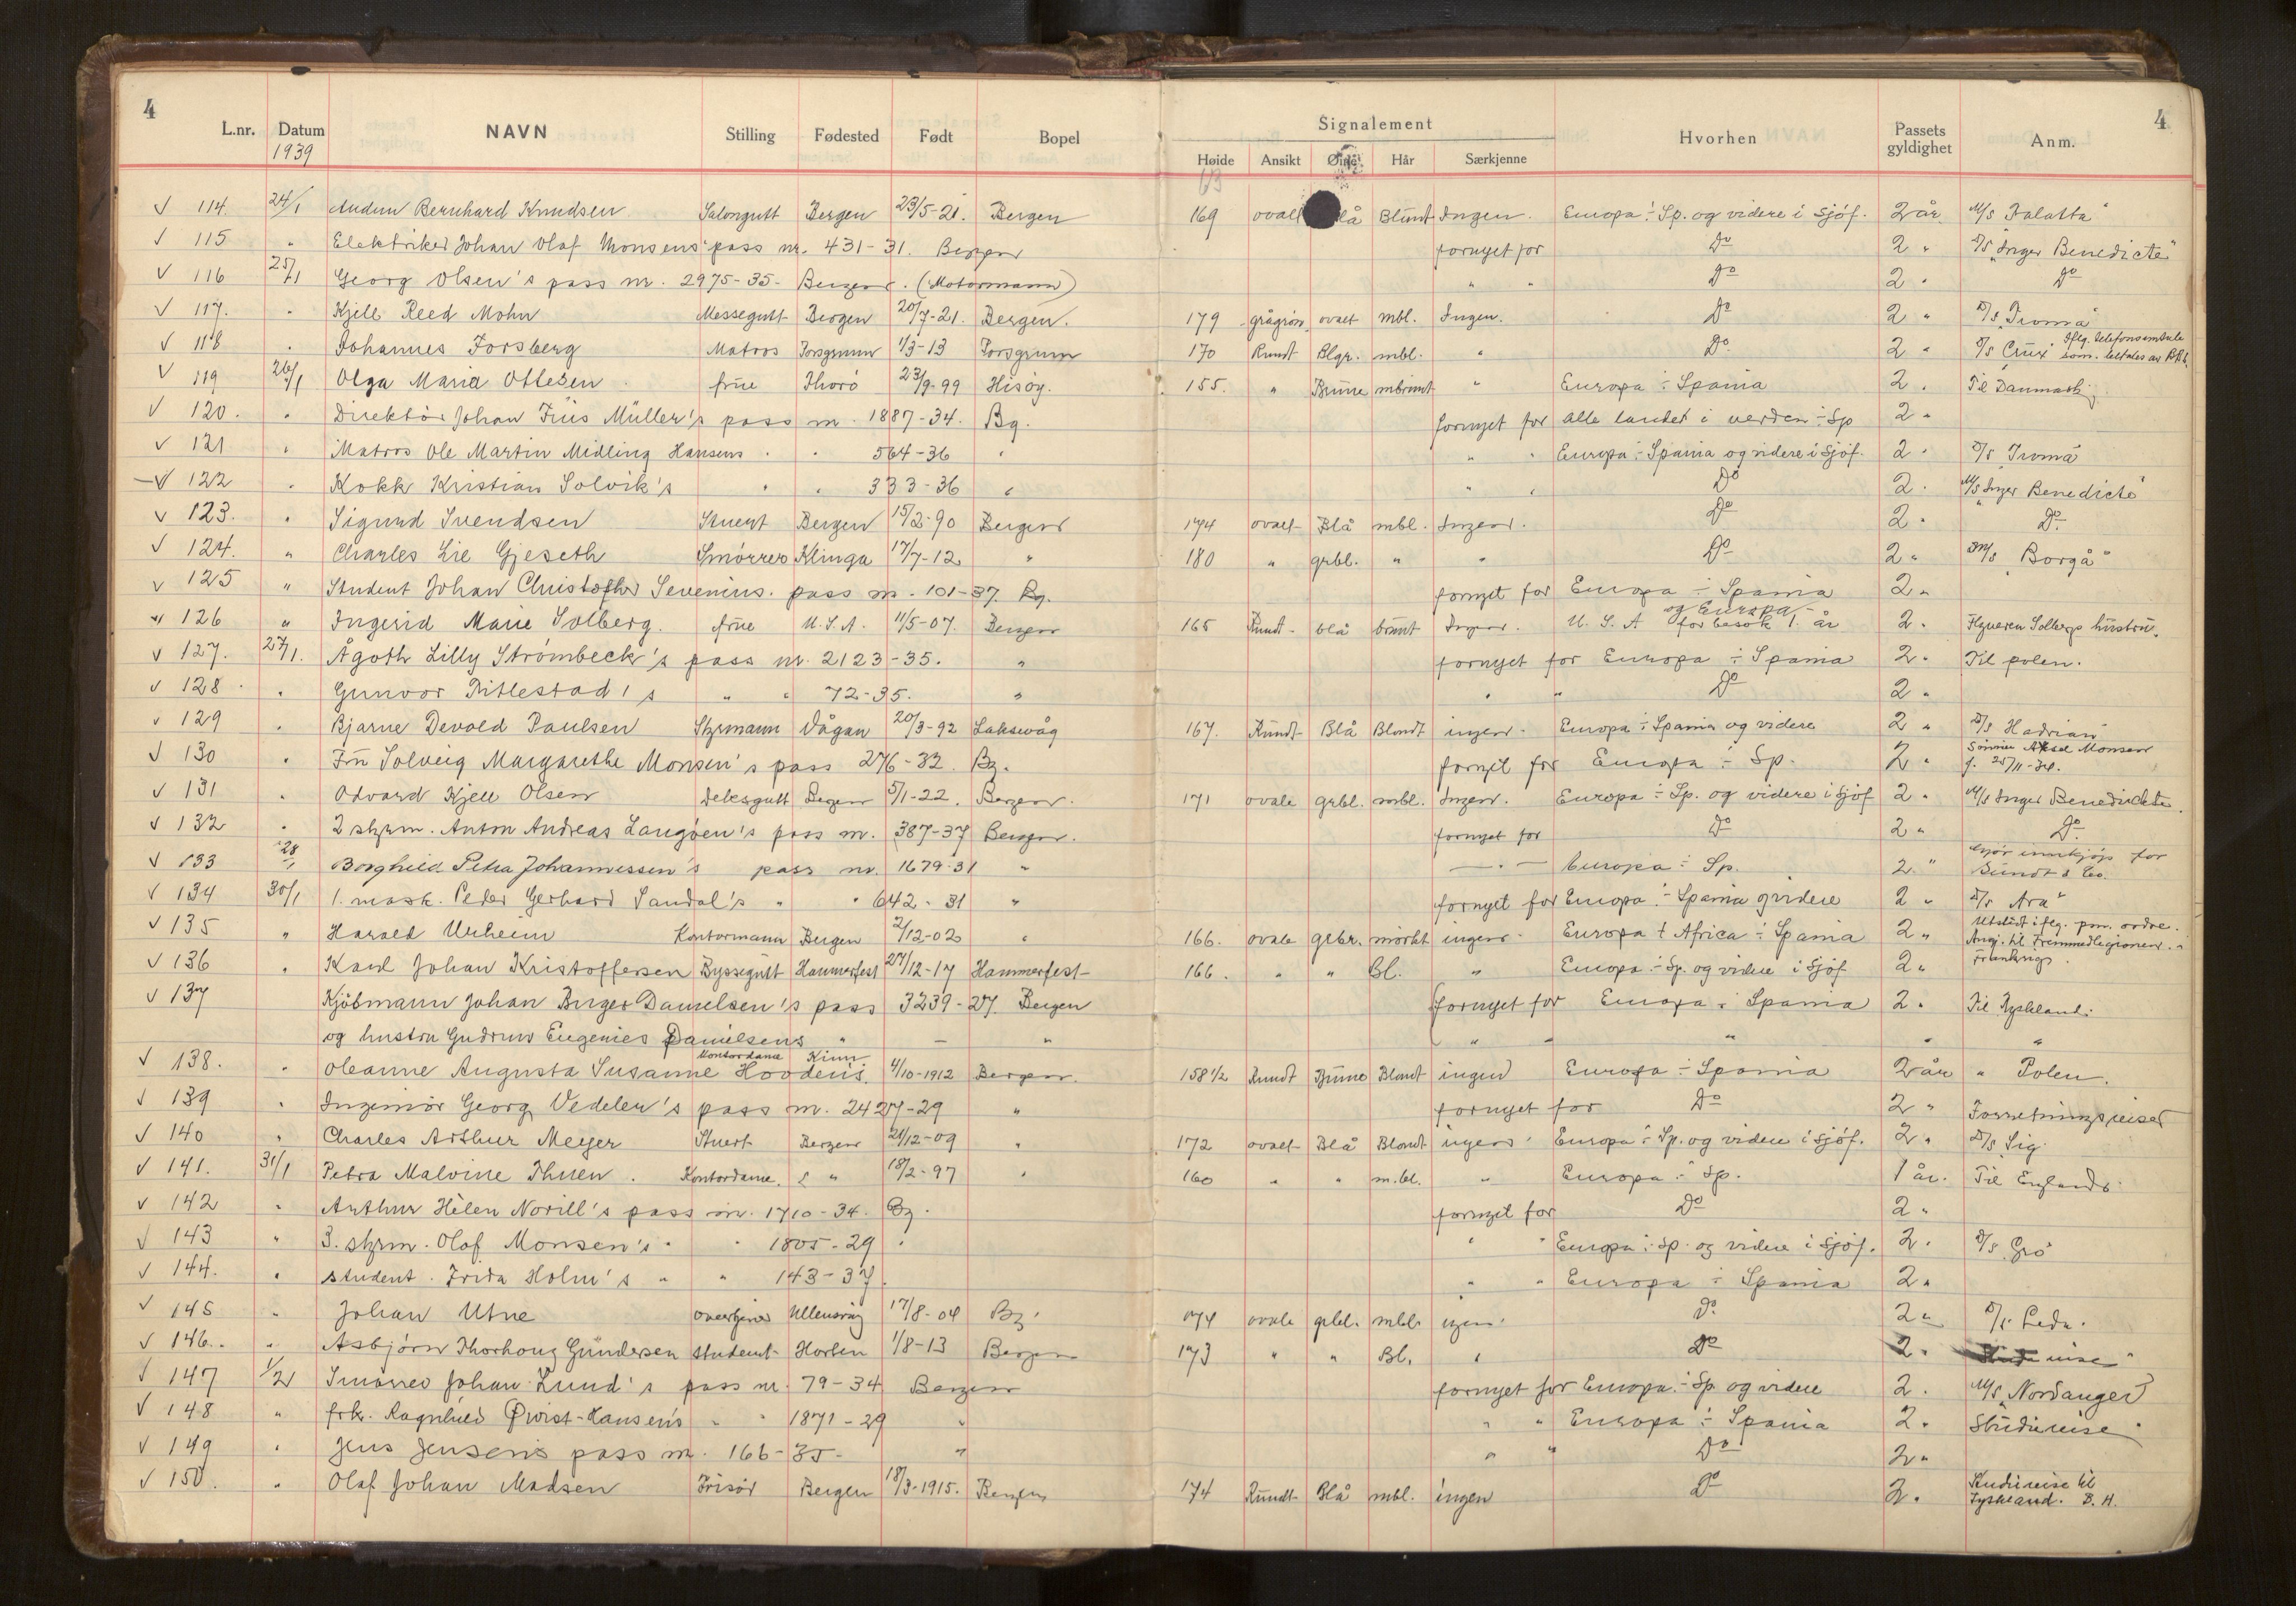 4 4
L.nr. Datum NAVN Stilling Fødested Født Bopel Signalement Hvorhen Passets gyldighet Anm.
1939 Høide Ansikt Øine Hår Særkjenne
√ 114. 24/1 Audun Bernhard Knudsen Salongutt Bergen 23/5-21. Bergen 169 ovalt Blå Blundt Ingen. Europa ÷ Sp. og videre i Sjöf. 2 år M/S
√ 115 " Elektriker Johan Olaf Monsens pass nr. 431-31. Bergen fornyet for Do 2 " D/S "Inger Benedicte"
√ 116 25/1 Georg Olsen's pass nr. 2975-35- Bergen. (Motormann) " " Do 2 " Do
√ 117. " Kjell Reed Mohn Messegutt Bergen 20/7-21. Bergen. 179 grågrön ovalt mbl. Ingen. Do 2 " D/S "Tromå"
√ 118 " Johannes Forsberg Matros Porsgrunn 1/3-13 Porsgrunn 170 Rundt Blgr. mbl. " Do 2 " D/S "Crux" iflg. telefonsamtale som
√ 119 26/1 Olga Maria Ottesen frue Thorö 23/9-99 Hisöy. 155. " Brune mbrunt " Europa ÷ Spania 2 " Til Danmark
√ 120. " Direktör Johan Friis Müller's pass nr. 1887-34. Bg. fornyet for alle landet i verden ÷ Sp 2 "
√ 121 " Matros Ole Martin Midling Hansens " " 564-36 " " " Europa ÷ Spania og videre i Sjöf. 2 " D/S "Tromå"
√ 122 " Kokk Kristian Solvik's " " 333-36 " " " Do 2 " M/S Inger Benedicte"
√ 123. " Sigurd Svendsen Stuert Bergen 15/2-90 Bergen 174 ovalt Blå mbl. Ingen. Do 2 " Do
√ 124. " Charles Lie Gjeseth Smörrer Klinga 17/7-12 " 180 " grbl. " " Do 2 " M/S "Borgå"
√ 125 " Student Johan Christopher Sevenius. pass nr. 101-37. Bg. fornyet for Europa ÷ Spania 2 "
√ 126 " Ingerid Marie Solberg. frue U.S.A. 11/5-07. Bergen 165 Rundt blå brunt Ingen. U.S.A og Europa for besök 1. år 2 " Solbergs hustru.
√ 127. 27/1. Ågoth Lilly Strömbeck's pass nr. 2123-35. " fornyet for Europa ÷ Spania 2 " Til polen.
√ 128. " Gunvor Tittestad's " " 72-35. " " " Do 2 "
√ 129 " Bjarne Devold Paulsen Styrmann Vågan 20/3-92 Laksevåg 167. Rundt Blå Blondt ingen. Europa ÷ Spania og videre 2 " D/S Hadrian"
√ 130 " Fru Solveig Margarethe Monsen's pass 276-32. Bg. fornyet for Europa ÷ Sp. 2 " Sönnen Aksel Monsen f. 25/11-34.
√ 131 " Odvard Kjell Olsen Deksgutt Bergen 5/1-22. Bergen. 171 ovale grbl. mbl. Ingen. Europa ÷ Sp. og videre i Sjöf 2 " M/S Inger Benedickte
√ 132 " 2 styrm. Anton Andreas Langöen's pass nr. 387-37 Bergen. fornyet for Do 2 " Do
√ 133 28/1 Borghild Petra Johannessen's pass nr. 1679-31 " — " — Europa ÷ Sp. 2 " Gjör innkjöp for Sundt & Co.
√ 134 30/1 1. mask. Peder Gerhard Sandal's " " 642-31 " fornyet for Europa ÷ Spania og videre 2 " D/S "Ara"
√ 135 " Harald Urheim Kontormann Bergen 2/12-02 " 166. ovale grbr. mörkt ingen. Europa + Africa ÷ Spania 2 " Utstedt iflg. pm. ordre. Ang. til Fremmedlegionen
√ 136 " Karl Johan Kristoffersen Byssegutt Hammerfest 27/12-17 Hammerfest 166. " " Bl. " Europa ÷ Sp. og videre i Sjöf. 2 "
√ 137 Kjöbmann Johan Birger Danielsen's pass 3239-27. Bergen fornyet for Europa ÷ Spania 2 " Til Tyskland.
og hustru Gudrun Eugenies Danielsens " — " " " " " "
√ 138. " Oleanne Augusta Susanne Hovdens. Kontordame Kinn 4/10-1912 Bergen. 158 1/2 Rundt Brune Blondt ingen Europa ÷ Spania 2 år " Polen.
√ 139 " Ingeniör Georg Vedeler's pass nr. 2427-29 " fornyet for Do 2 " Forretningsreiser
√ 140 " Charles Arthur Meyer Stuert Bergen 21/12-09 " 172 ovalt Blå Blondt ingen. Europa ÷ Sp. og videre i sjöf. 2 " D/S "Sig.
√ 141. 31/1 Petra Malvine Thuen. Kontordame. " 18/2-97 " 160 " " m.bl. " Europa ÷ Sp. 1 år. Til England.
√ 142 " Arthur Hélen Norill's pass nr. 1710-34. Bg. fornyet for Do 2 "
√ 143 " 3. styrm. Olaf Monsen's " " 1805-29 " " " Europa ÷ Sp. og videre i Sjöf. 2 " D/S "Gro"
√ 144. " student. Frida Holm's " " 143-37. " " Europa ÷ Spania 2 "
√ 145 " Johan Utne Ullensvåg 17/8-04 Bg. 174 ovale grbl. mbl. ingen. Do 2 " D/S Leda.
√ 146. " Asbjörn Thorhoug Gundersen student Horten 1/8-13 Bergen 173 " " Bl. " Do 2 "
√ 147 1/2 Smörrer Johan Lund's pass nr. 79-34 Bergen fornyet for Europa ÷ Sp. og videre 2 " M/S "Nordanger"
√ 148 " frk. Ragnhild Qvist-Hansens " " 1871-29 " " " Europa ÷ Spania 2 " Studiereise
√ 149 " Jens Jensens pass nr. 166-35- " " " Do 2 "
√ 150. " Olaf Johan Madsen Frisör Bergen 18/3-1915. Bergen 174 Rundt Blå mbl. ingen Do 2 " Studiereise til Tyskland. B.H.